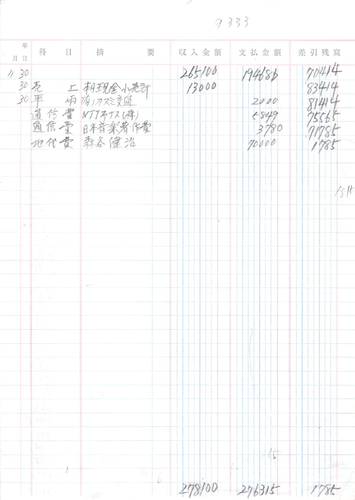 9333
年 月 日 科目 摘要 収入金額 支払金額 差引残高
11 30 265100 194686 70414
30 売上 利現金小売計 13000 83414
30 車両 2000 81414
通信費 5849 75565
通信費 日本音楽著作費 3780 71785
地代費 森谷健治 70000 1785
278100 276315 1785